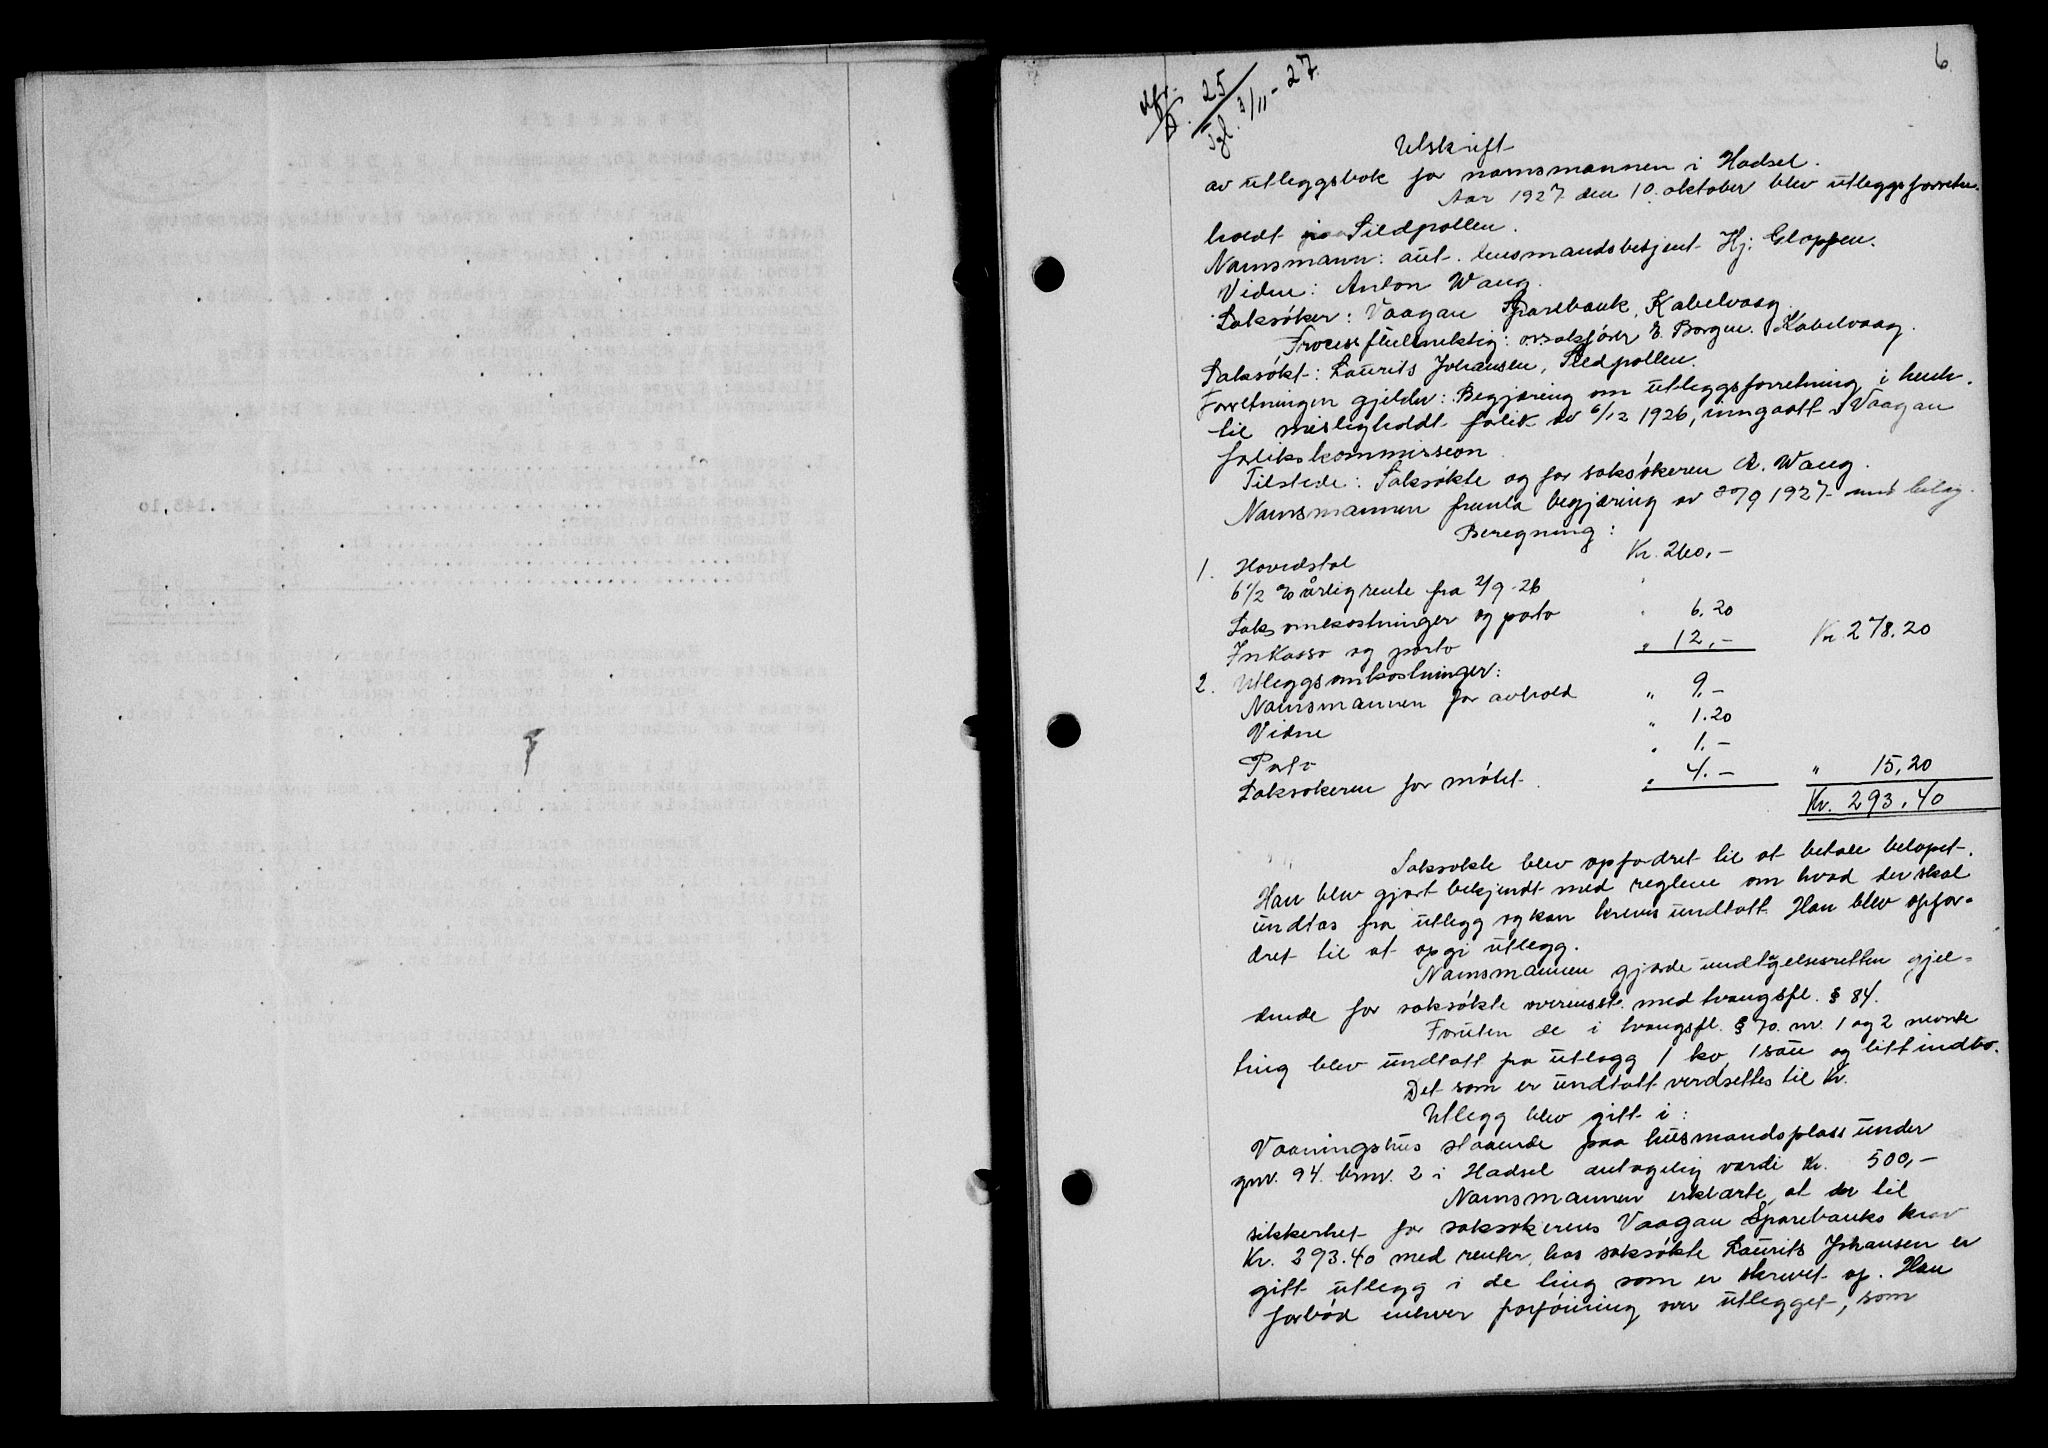 6
25
Tgl. 3/11-27.
Utskrift
av utleggsbok for namsmannen i Hadsel.
Aar 1927 den 10. oktober blev utleggsforretn.
holdt paa Sildpollen.
Namsmann: aut. lensmandsbetjent Hj. Gloppen.
Vidne: Anton Waug.
Saksøker: Vaagan Sparebank, Kabelvaag.
Procesfuldmektig: o.r.sakfører E. Borgen. Kabelvaag.
Saksøkt: Laurits Johansen, Sildpollen.
Forretningen gjelder: Begjæring om utleggsforretning i henh.
til misligholdt forlik av 6/12 1926, inngaatt i Vaagan
forlikskommission.
Tilstede: Saksøkte og for saksøkeren A. Waug.
Namsmannen fremla begjæring av 30/9 1927 med bilag.
Beregning:
1. Hovedstol Kr. 260,-
6 1/2 % årlig rente fra 2/9-26 "
Saksomkostninger og porto " 6.20
Inkasso og porto " 12,- Kr. 278.20
2. Utleggsomkostninger:
Namsmannen for avhold " 9,-
Vidne " 1.20
Porto " 1.-
Saksøkeren for møtet. " 4.- " 15,20
Kr. 293,40
Saksøkte blev opfordret til at betale beløpet.
Han blev gjort bekjendt med reglene om hvad der skal
undtas fra utlegg og kan kreves undtatt. Han blev opfor-
dret til at opgi utlegg.
Namsmannen gjorde undtagelsesretten gjel-
dende for saksøkte overensst. med tvangsfl. § 84.
Foruten de i tvangsfl. § 70. nr. 1 og 2 nevnte
ting blev undtatt fra utlegg 1 ko, 1 sau og litt indbo.
Det som er undtatt verdsettes til Kr.
Utlegg blev gitt i:
Vaaningshus staaende paa husmandsplass under
gnr. 94. brnr. 2 i Hadsel antagelig værdi Kr. 500,-
Namsmannen erklærte, at der til
sikkerhet for saksøkerens Vaagan Sparebanks krav
Kr. 293.40 med renter, hos saksøkte Laurits Johansen er
gitt utlegg i de ting som er skrevet op. Han
forbød enhver forføining over utlegget, som